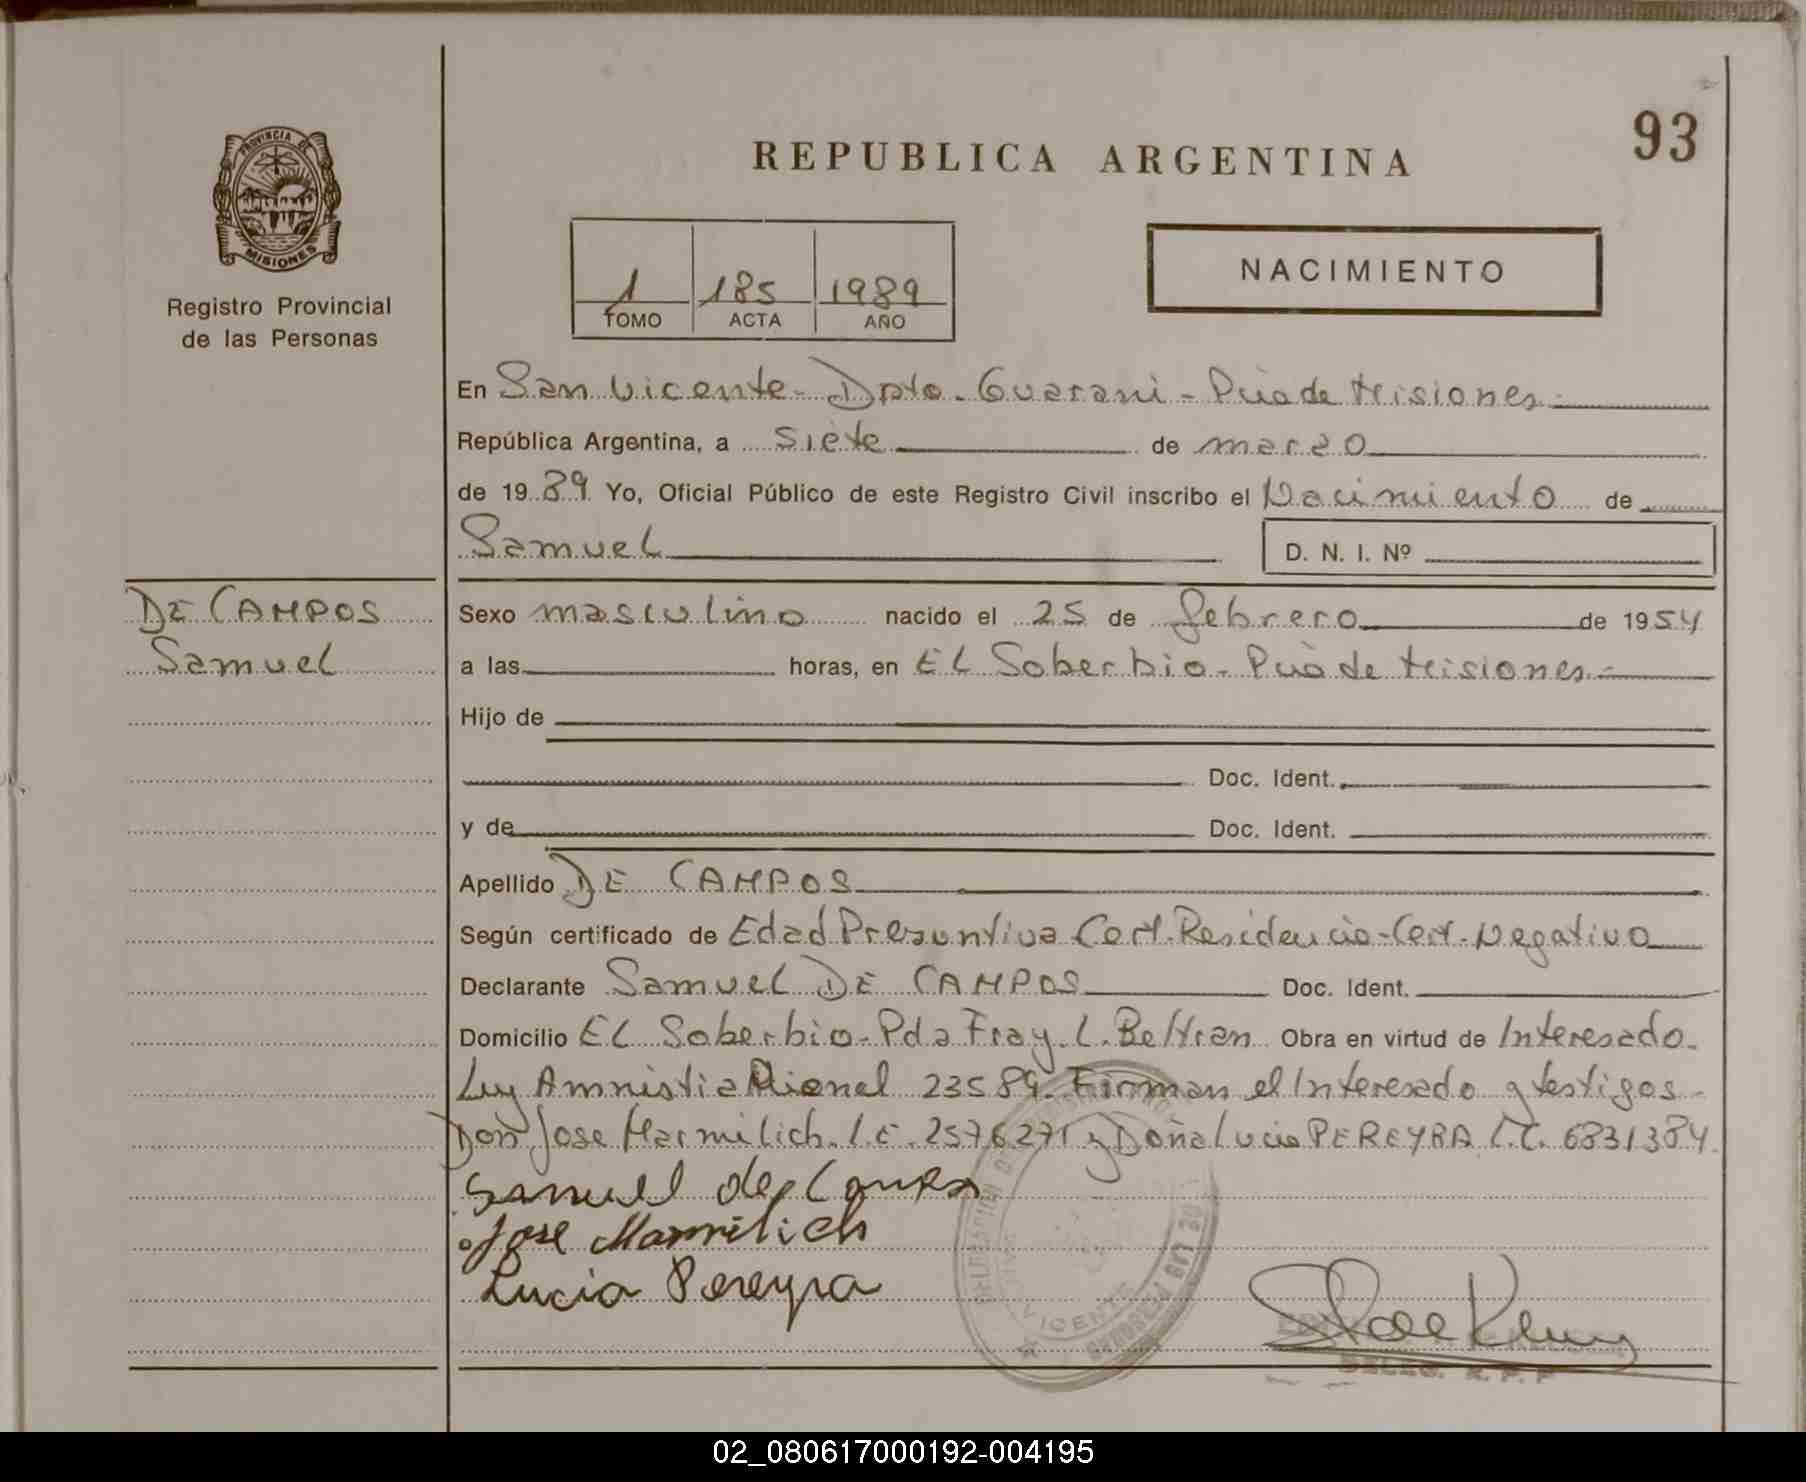 PROVINCIA DE
MISIONES
Registro Provincial
de las Personas
REPUBLICA ARGENTINA
93
1 185 1989
TOMO ACTA AÑO
NACIMIENTO
En San Vicente - Dpto. Guarani - Pcia de Misiones
República Argentina, a siete de marzo
de 1989 Yo, Oficial Público de este Registro Civil inscribo el Nacimiento de
Samuel D. N. I. Nº
DE CAMPOS
Samuel
Sexo masculino nacido el 25 de febrero de 1954
a las horas, en EL Soberbio - Pcia de Misiones
Hijo de
Doc. Ident.
y de Doc. Ident.
Apellido DE CAMPOS
Según certificado de Edad Presuntiva Cert. Residencia - Cert. Negativo
Declarante Samuel DE CAMPOS Doc. Ident.
Domicilio EL Soberbio - Pda Fray L. Beltran Obra en virtud de Interesado.
Ley Amnistia 23589. Firman el Interesado y testigos
Don Jose Marmilich. L.E. 2576271 y Doña Lucia PEREYRA L.C. 6831384.
Samuel de Campos
Jose Marmilich
Lucia Pereyra
VICENTE
DE LAS PERSONAS
DELEG. R. P. P
02_080617000192-004195